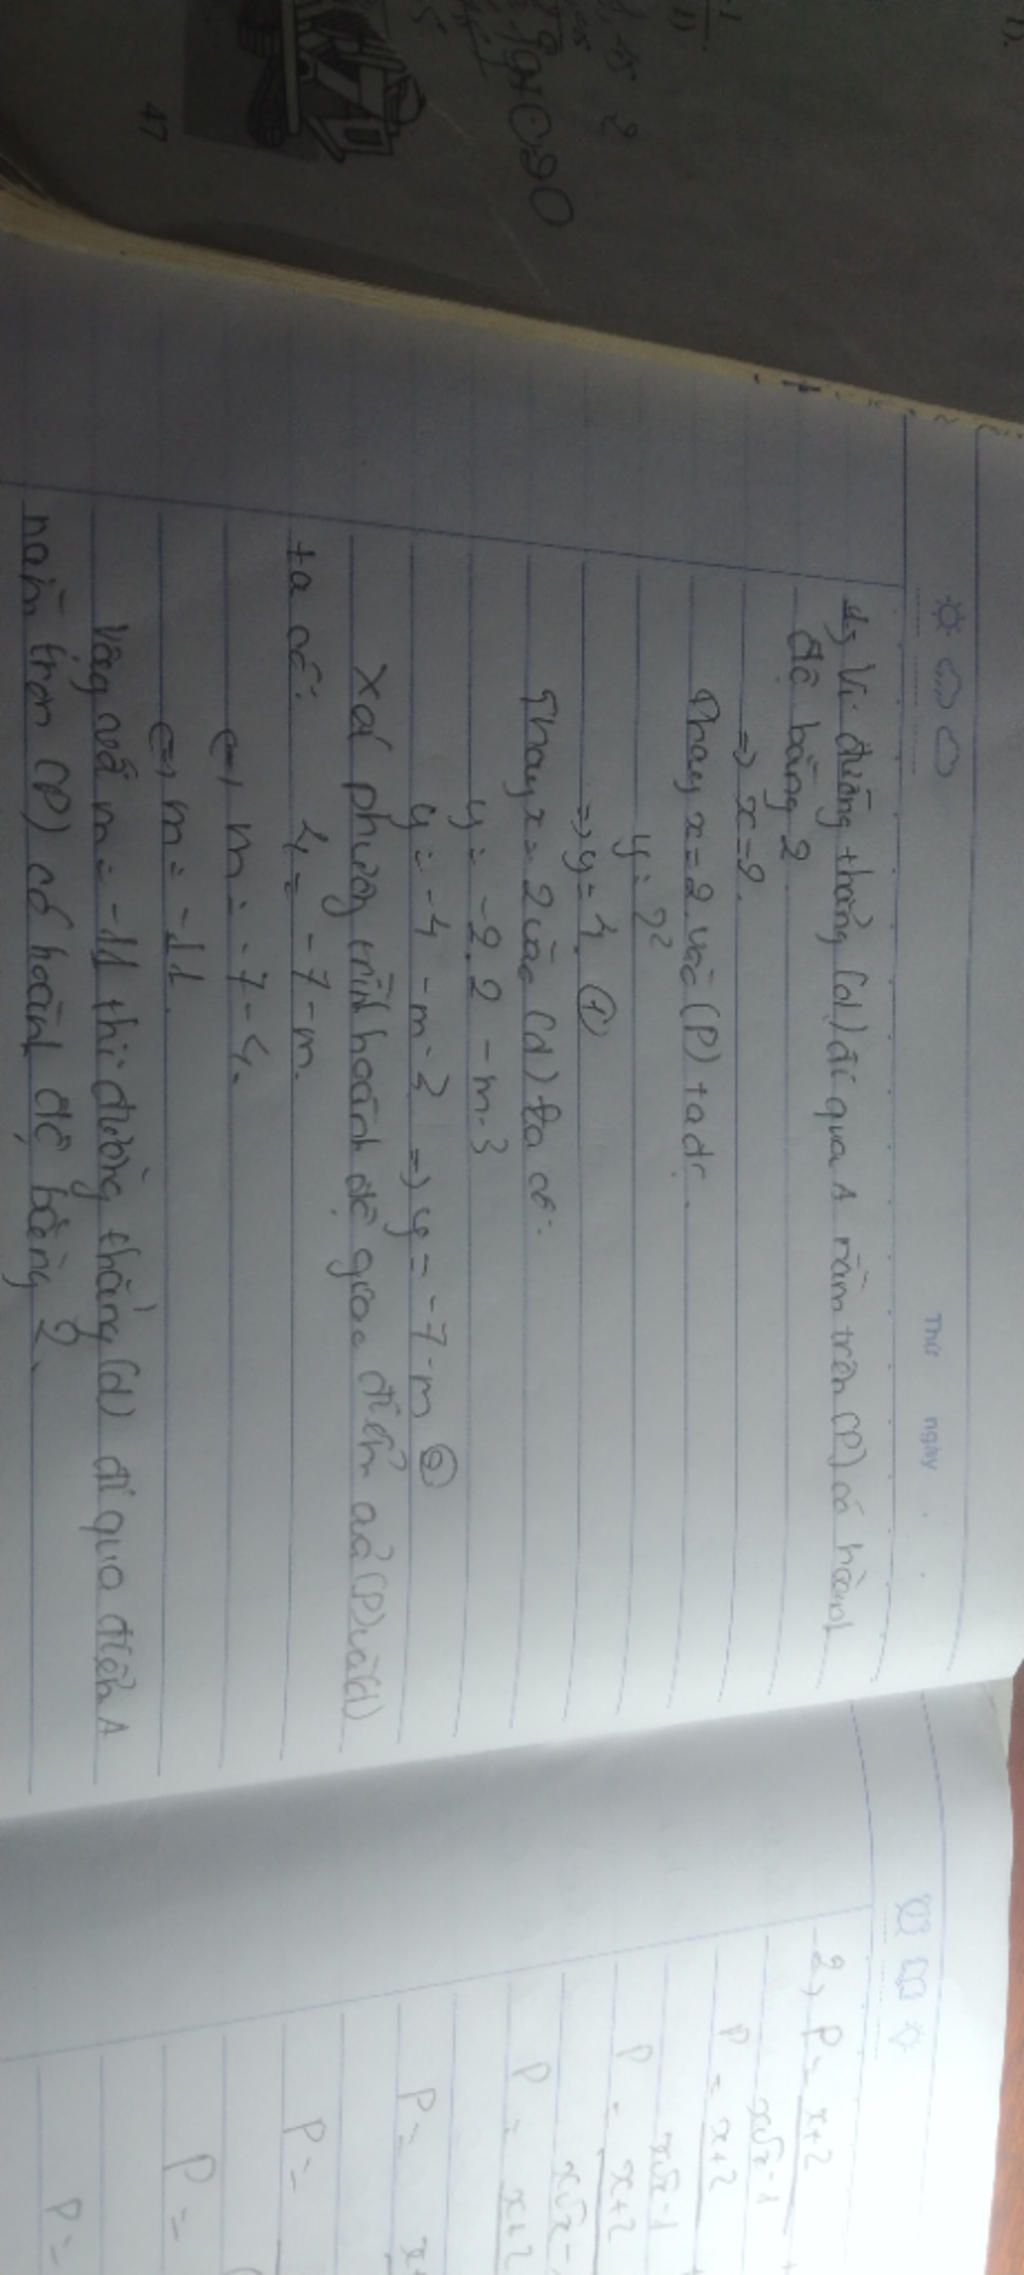 Thứ ngày
1, Vì đường thẳng (d) đi qua A nằm trên (P) có hoành
độ bằng 2
=> x = 2.
Thay x = 2 vào (P) ta đc.
y = 2²
=> y = 4. ①
Thay x = 2 vào (d) ta có:
y = -2.2 - m - 3
y = -4 - m - 3 => y = -7 - m ②
Xét phương trình hoành độ giao điểm của (P) và (d)
ta có: 4 = -7 - m.
<=> m = -7 - 4.
<=> m = -11.
Vậy với m = -11 thì đường thẳng (d) đi qua điểm A
nằm trên (P) có hoành độ bằng 2.
2, P = x+2
x√x - 1
P = x+2
x√x - 1
P = x+2
x√x -
P = x+2
P =
P =
P =
P =
47